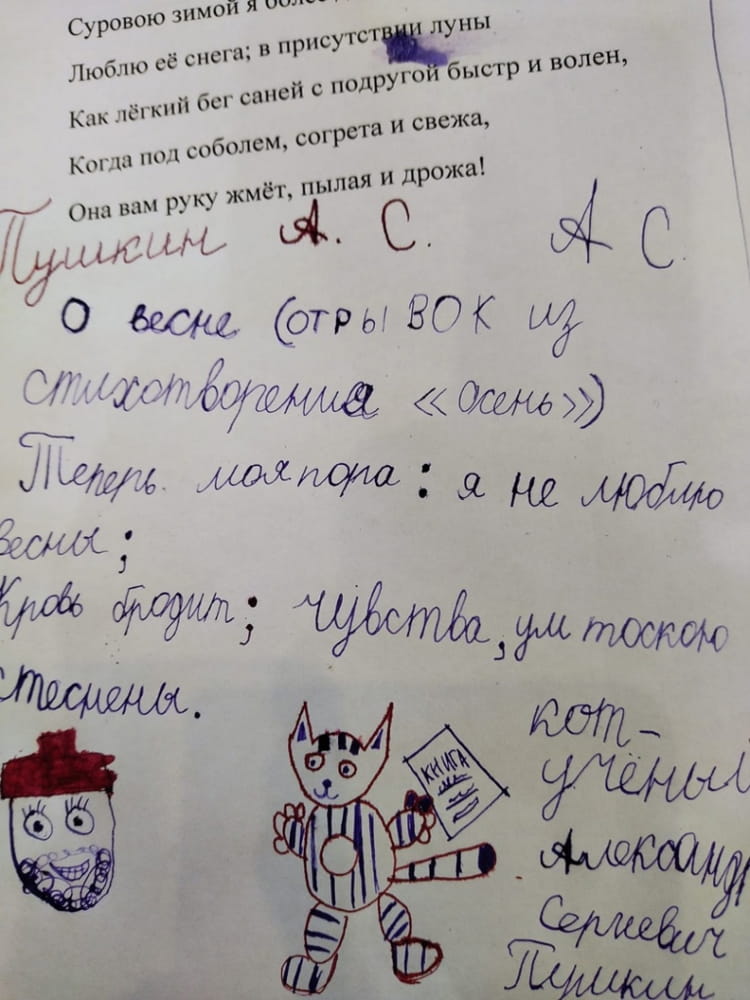 Суровою зимой я более
Люблю её снега; в присутствии луны
Как лёгкий бег саней с подругой быстр и волен,
Когда под соболем, согрета и свежа,
Она вам руку жмёт, пылая и дрожа!
Пушкин А. С. А С.
О весне (отрывок из
стихотворения «Осень»)
Теперь моя пора: я не люблю
весны;
Кровь бродит; чувства, ум тоскою
стеснены.
кот-
учёный
КНИГА
Александр
Сергневич
Пушкин